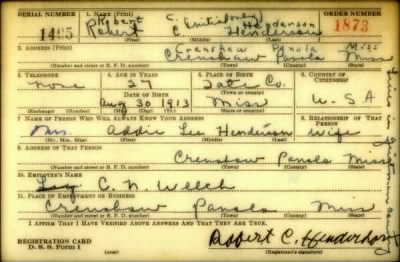 SERIAL NUMBER 1. NAME (Print) ORDER NUMBER
Robert C. (initial only) Henderson
1495 Robert C. Henderson 1873
(First) (Middle) (Last)
2. ADDRESS (Print)
Crenshaw Panola Miss
Crenshaw Panola Miss
(Number and street or R. F. D. number) (Town) (County) (State)
3. TELEPHONE 4. AGE IN YEARS 5. PLACE OF BIRTH 6. COUNTRY OF CITIZENSHIP
none 27 Tate Co.
DATE OF BIRTH
Aug 30 1913 Miss U. S A
(Exchange) (Number) (Mo.) (Day) (Yr.) (State or country)
7. NAME OF PERSON WHO WILL ALWAYS KNOW YOUR ADDRESS 8. RELATIONSHIP OF THAT PERSON
Mrs. Addie Lee Henderson Wife
(Mr., Mrs., Miss) (First) (Middle) (Last)
9. ADDRESS OF THAT PERSON
Crenshaw Panola Miss
(Number and street or R. F. D. number) (Town) (County) (State)
10. EMPLOYER'S NAME
C. N. Welch
11. PLACE OF EMPLOYMENT OR BUSINESS
Crenshaw Panola Miss
(Number and street or R. F. D. number) (Town) (County) (State)
I AFFIRM THAT I HAVE VERIFIED ABOVE ANSWERS AND THAT THEY ARE TRUE.
REGISTRATION CARD
D. S. S. Form 1
(over)
Robert C. Henderson
(Registrant's signature)